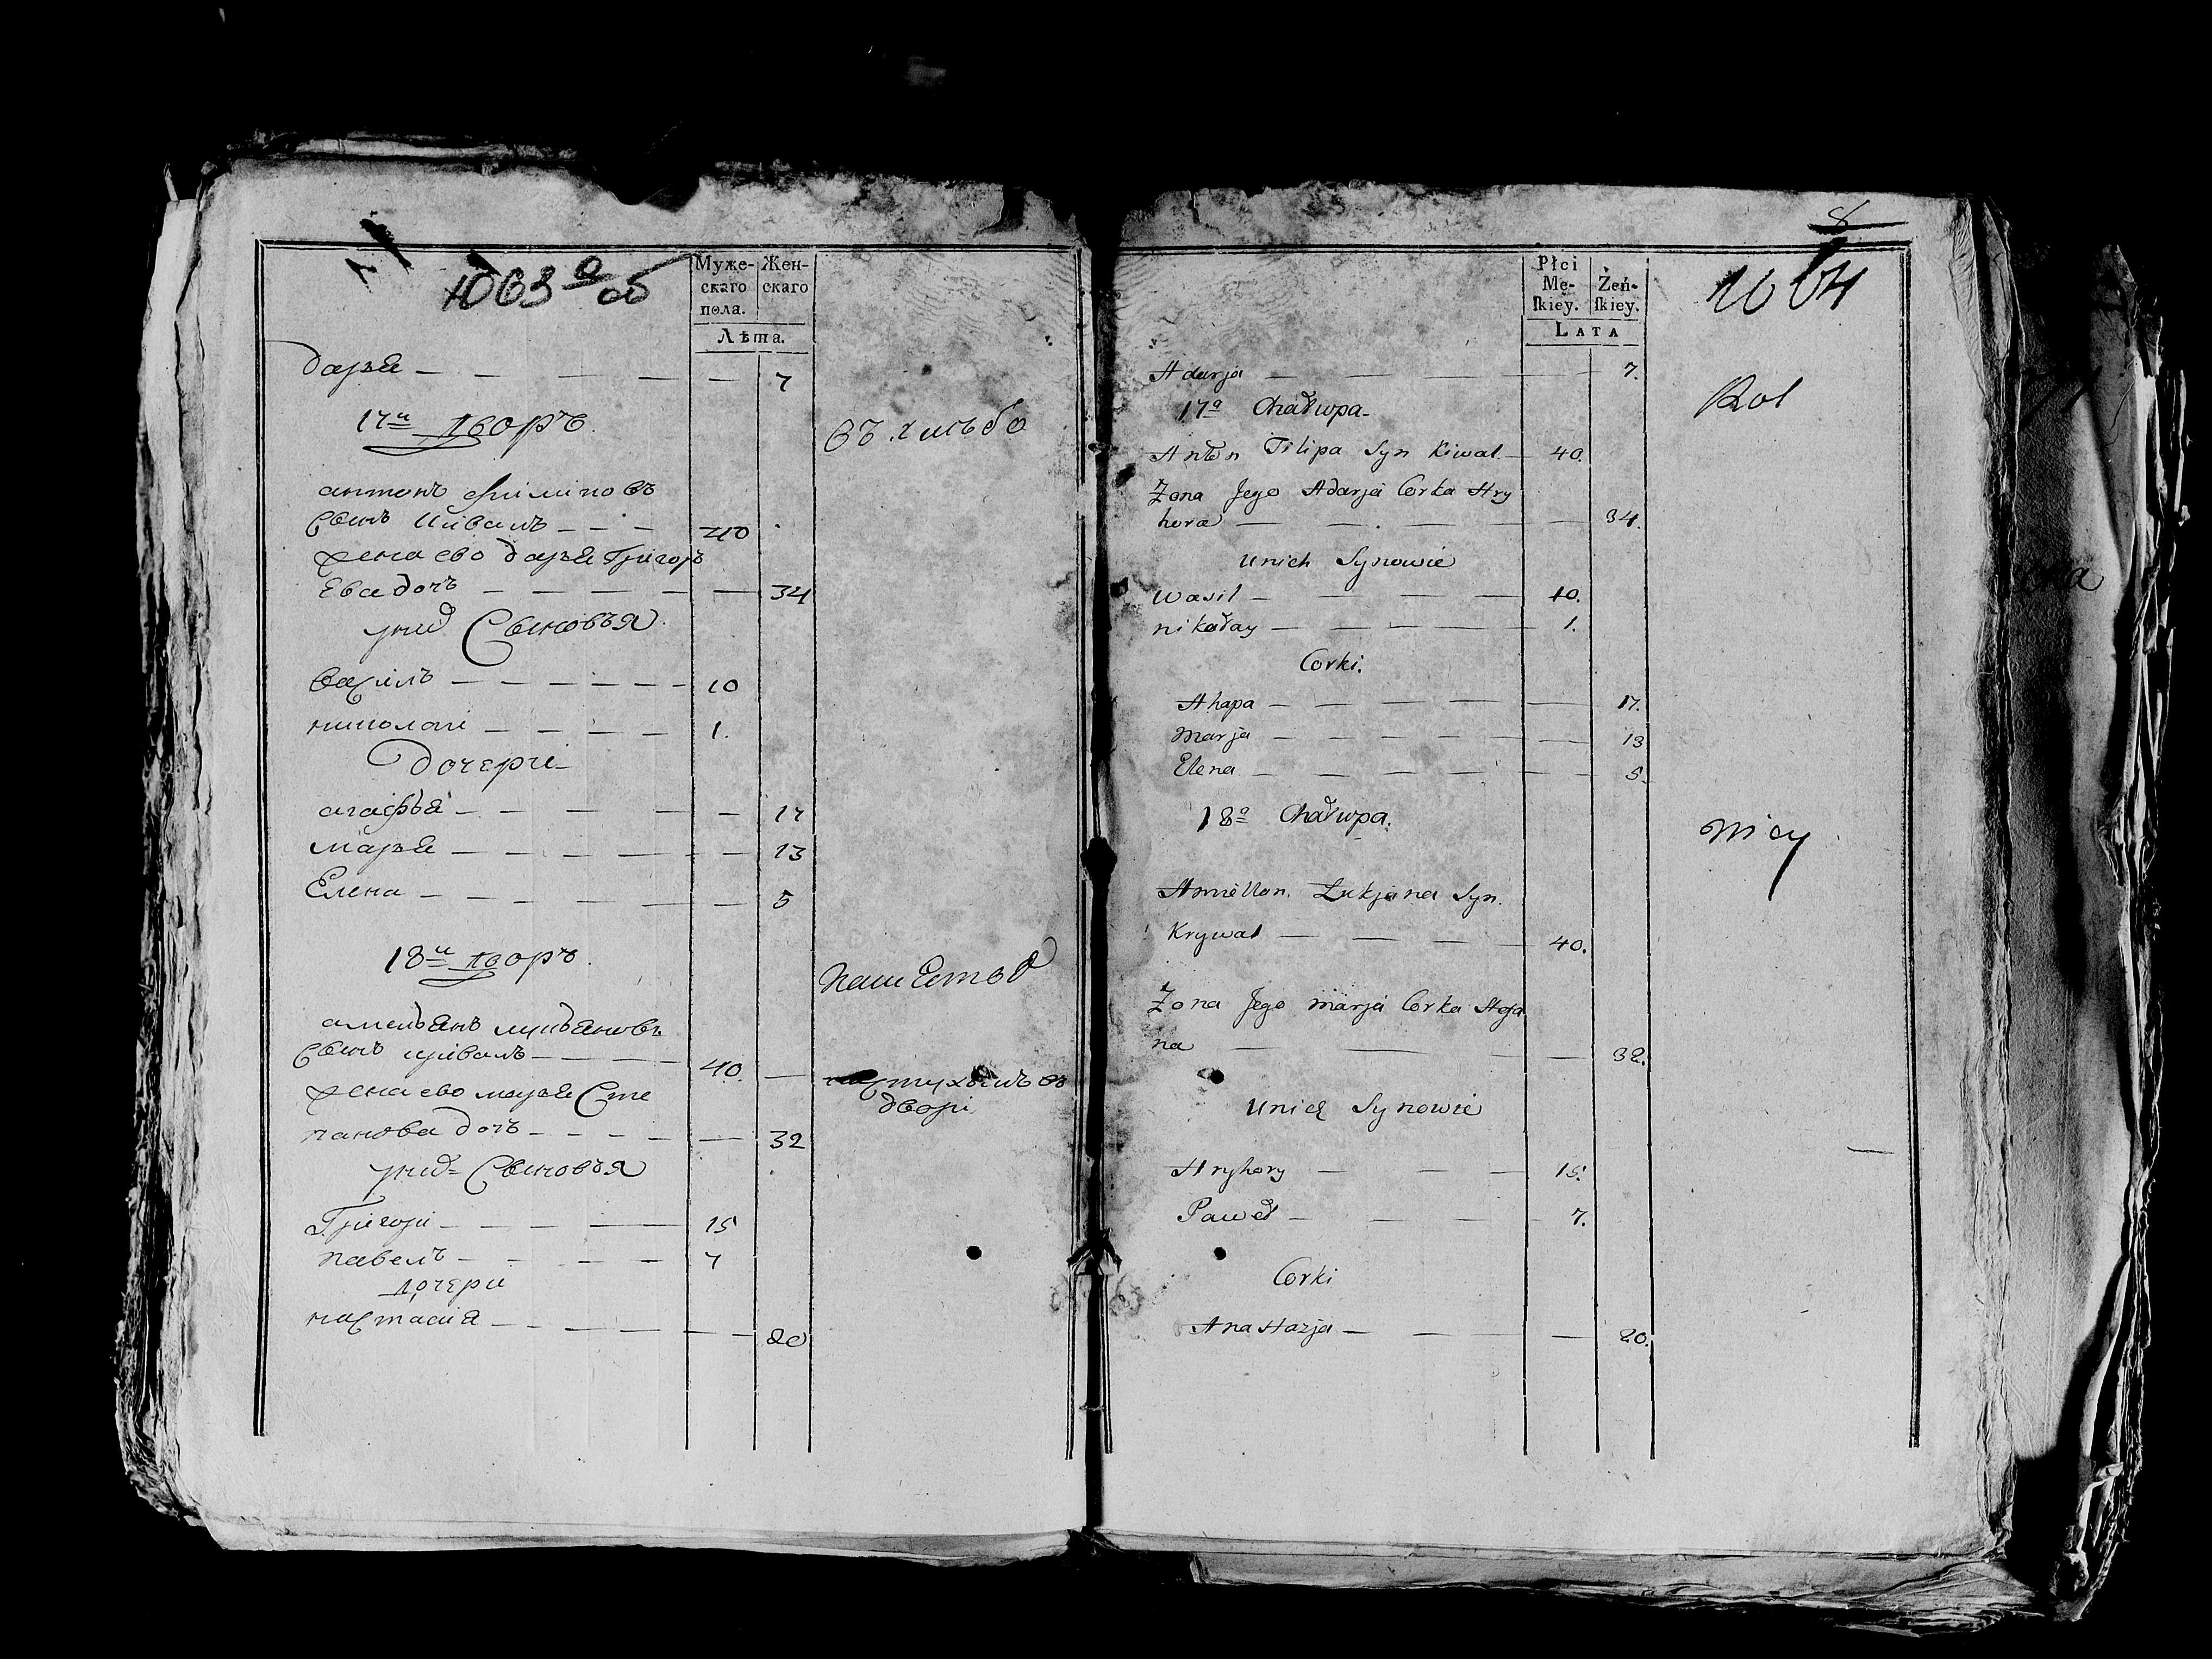 1063 об
Муже-
скаго
пола.
Жен-
скаго
Лѣта.
дарья 7
17й дворъ
антонъ филиповъ
сынъ кивалъ 40
жена ево дарья григорь
ева дочь 34
у них сыновья
василь 10
николаи 1.
дочери
агафья 17
марья 13
Елена 5
18й дворъ
амельянъ лукьяновъ
сынъ кривалъ 40.
жена ево марья сте
панова дочь 32
у них сыновья
григори 15
павелъ 7
дочери
настасия 20
дворі
8
1064
Płci
Mę-
ſkiey.
Żeń-
ſkiey.
LATA
Adarja 7.
17a Chałupa
Anton Filipa Syn Kiwal 40.
Zona Jego Adarja Corka Hry
hora 34.
unich Synowie
Wasil 10.
nikołay 1.
Corki.
Ahapa 17.
Marja 13
Elena 5.
18a Chałupa.
Amiellan Łukjana Syn.
Krywal 40.
Zona Jego marja Corka Stefa
na 32.
unich Synowie
Hryhory 15.
Paweł 7.
Corki
Anastazja 20.
Rol